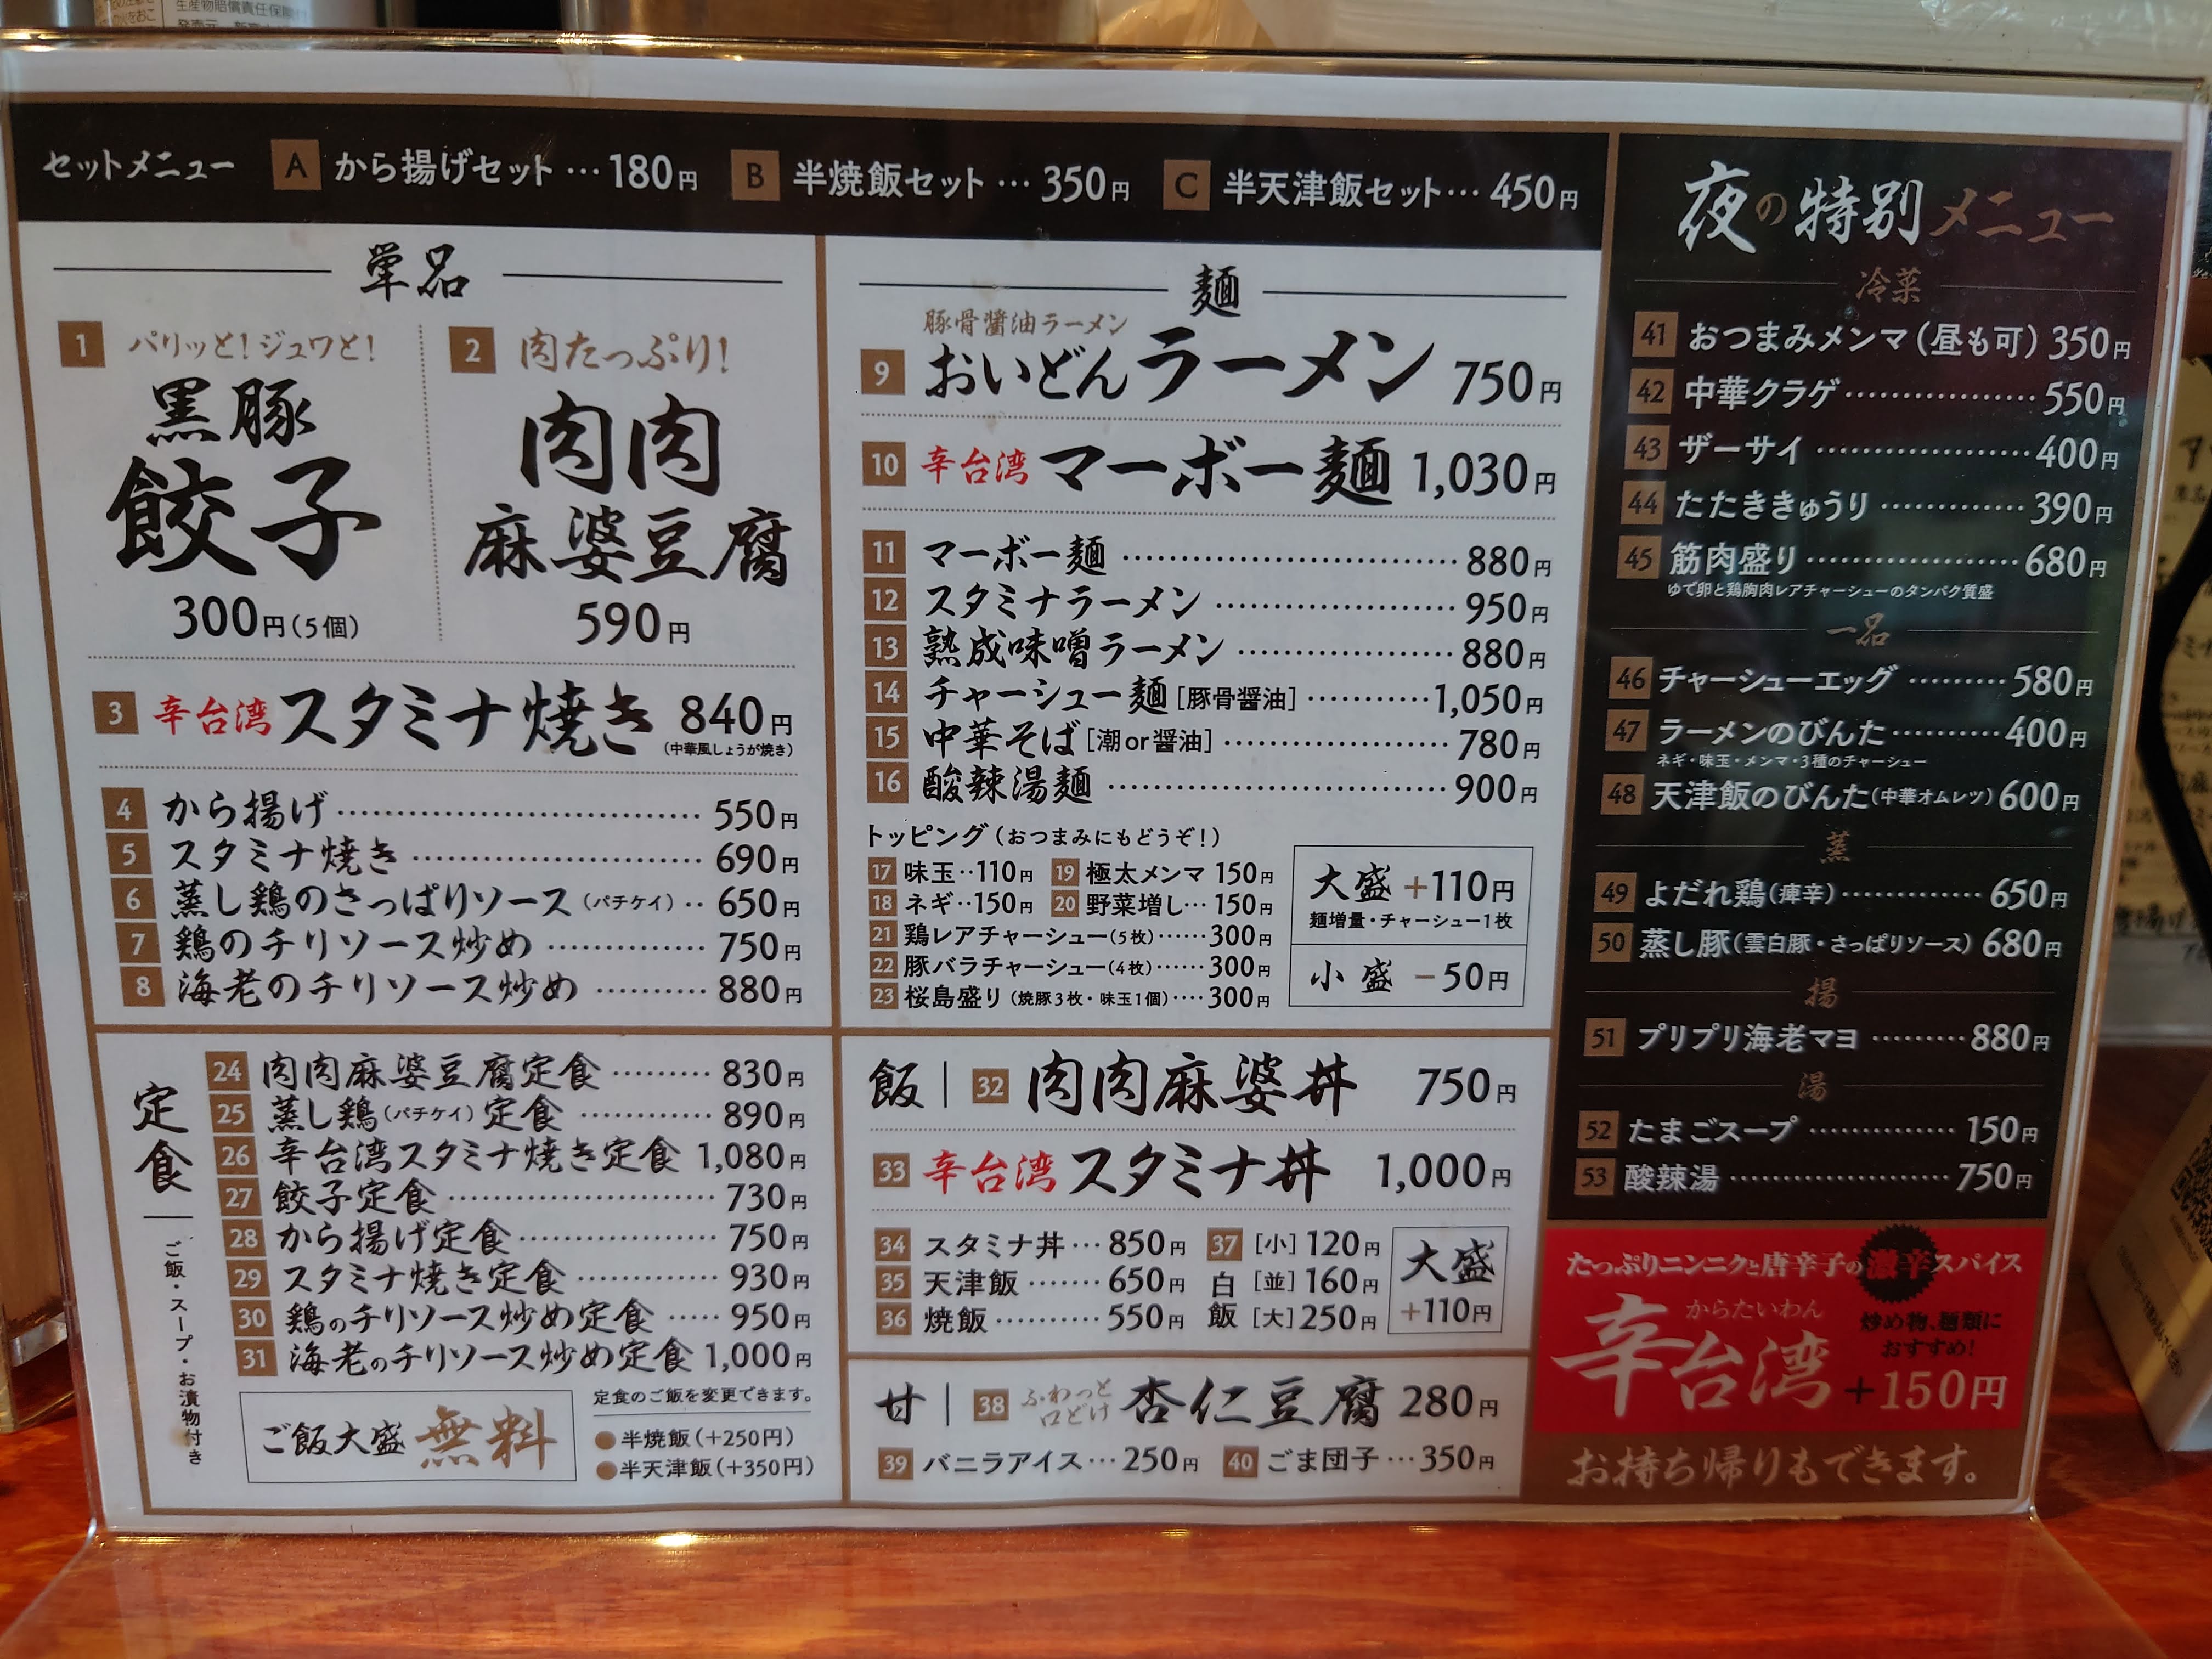 生産物賠償責任保険
セットメニュー A から揚げセット…180円 B 半焼飯セット…350円 C 半天津飯セット…450円
単品
1 パリッと!ジュワと!
黒豚
餃子
300円(5個)
2 肉たっぷり!
肉肉
麻婆豆腐
590円
3 辛台湾 スタミナ焼き 840円
(中華風しょうが焼き)
4 から揚げ…550円
5 スタミナ焼き…690円
6 蒸し鶏のさっぱりソース(パチケイ)‥650円
7 鶏のチリソース炒め…750円
8 海老のチリソース炒め…880円
麺
豚骨醤油ラーメン
9 おいどんラーメン 750円
10 辛台湾 マーボー麺 1,030円
11 マーボー麺…880円
12 スタミナラーメン…950円
13 熟成味噌ラーメン…880円
14 チャーシュー麺[豚骨醤油]…1,050円
15 中華そば[潮or醤油]…780円
16 酸辣湯麺…900円
トッピング(おつまみにもどうぞ!)
17 味玉‥110円 19 極太メンマ 150円
18 ネギ‥150円 20 野菜増し…150円
21 鶏レアチャーシュー(5枚)……300円
22 豚バラチャーシュー(4枚)……300円
23 桜島盛り(焼豚3枚・味玉1個)‥‥300円
大盛 +110円
麺増量・チャーシュー1枚
小盛 −50円
定食
ご飯・スープ・お漬物付き
24 肉肉麻婆豆腐定食…830円
25 蒸し鶏(パチケイ)定食…890円
26 辛台湾スタミナ焼き定食 1,080円
27 餃子定食…730円
28 から揚げ定食…750円
29 スタミナ焼き定食…930円
30 鶏のチリソース炒め定食…950円
31 海老のチリソース炒め定食 1,000円
ご飯大盛 無料
定食のご飯を変更できます。
●半焼飯(+250円)
●半天津飯(+350円)
飯 | 32 肉肉麻婆丼 750円
33 辛台湾 スタミナ丼 1,000円
34 スタミナ丼…850円
35 天津飯…650円
36 焼飯…550円
37 白飯 [小]120円
[並]160円
[大]250円
大盛
+110円
甘 | 38 ふわっと口どけ 杏仁豆腐 280円
39 バニラアイス…250円 40 ごま団子…350円
夜の特別メニュー
冷菜
41 おつまみメンマ(昼も可)350円
42 中華クラゲ…550円
43 ザーサイ…400円
44 たたききゅうり…390円
45 筋肉盛り…680円
ゆで卵と鶏胸肉レアチャーシューのタンパク質盛
一品
46 チャーシューエッグ…580円
47 ラーメンのびんた…400円
ネギ・味玉・メンマ・3種のチャーシュー
48 天津飯のびんた(中華オムレツ)600円
蒸
49 よだれ鶏(痺辛)…650円
50 蒸し豚(雲白豚・さっぱりソース)680円
揚
51 プリプリ海老マヨ…880円
湯
52 たまごスープ…150円
53 酸辣湯…750円
たっぷりニンニクと唐辛子の激辛スパイス
からたいわん
辛台湾
炒め物、麺類に
おすすめ!
+150円
お持ち帰りもできます。